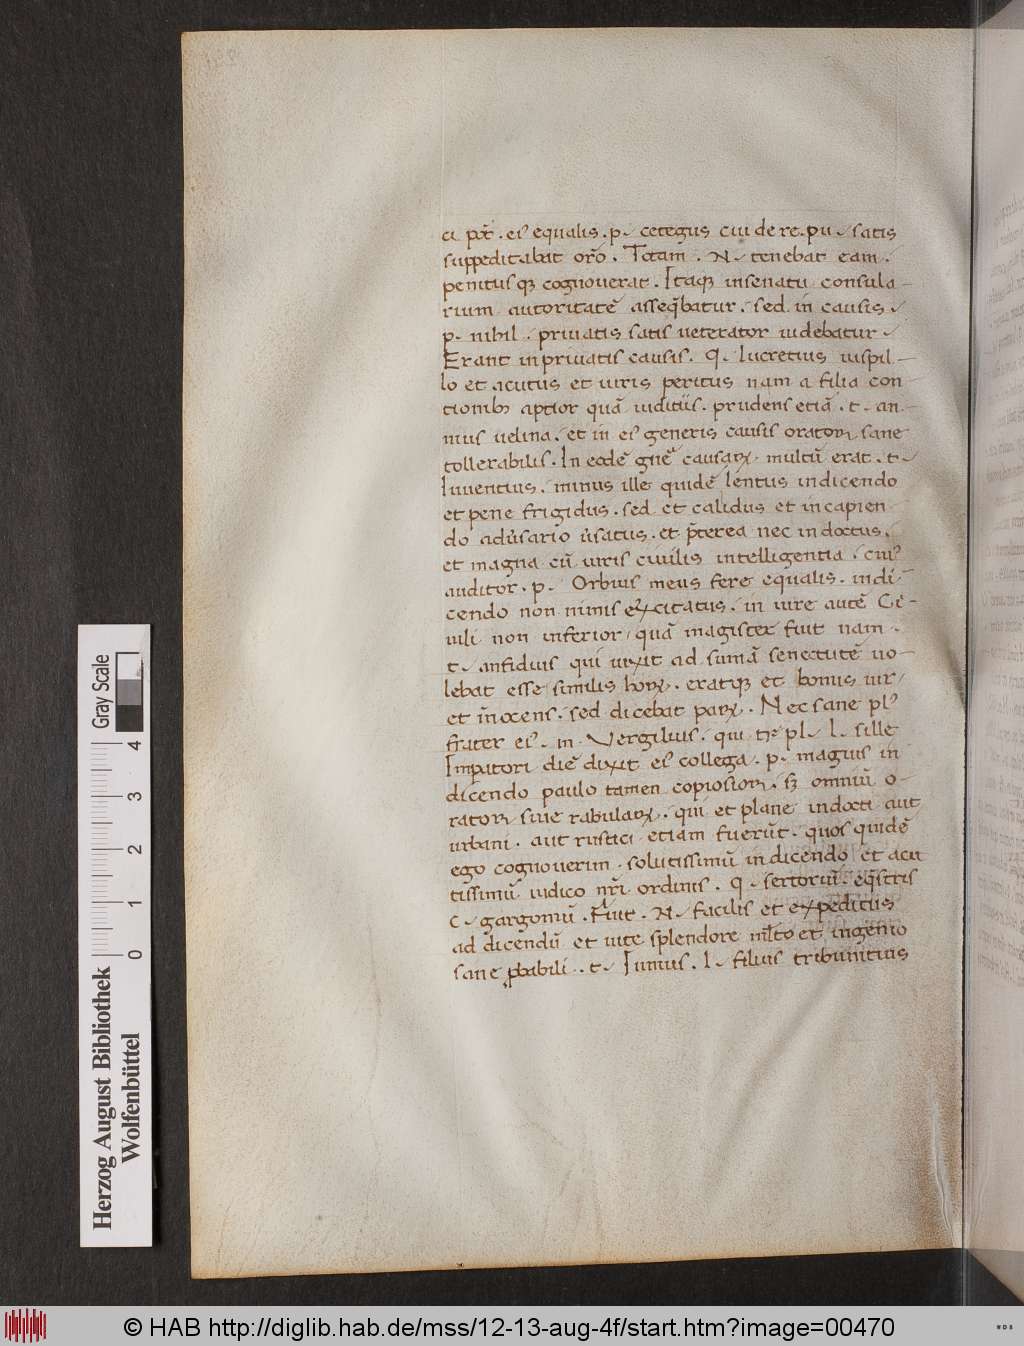 ci pōt . ei⁹ equalis . p . cetegus cui de re . pu . satis
suppeditabat orō . Totam . N . tenebat eam .
penitusqꝫ cognouerat . Itaqꝫ insenatu consula-
rium autoritatē asseq̄batur . sed in causis .
p . nihil . priuatis satis ueterator uidebatur .
Erant inpriuatis causis . Q . lucretius uispil-
lo et acutus et iuris peritus nam a filia con-
tionibꝫ aptior quā iuditiis . prudens etiā . t . an-
nius uelina . et in ei⁹ generis causis orator sane
tollerabilis . In eodē gn̄e causaꝝ multū erat . t .
Iuuentius . nimis ille quidē lentus indicendo
et pene frigidus . sed et calidus et incapien-
do adūsario ūsatus . et p̄terea nec indoctus .
et magna cū iuris ciuilis intelligentia . cui⁹
auditor . p . Orbius meus fere equalis . indi-
cendo non nimis exercitatus . in iure autē Ci-
uili non inferior , quā magister fuit nam .
t . anfidius qui uixit ad sumā senectutē uo-
lebat esse similis hoꝝ . eratqꝫ et bonus uir ,
et īnocens . sed dicebat paꝝ . Nec sane pl⁹
frater ei⁹ . m . Vergilius . qui tr̄ pl . l . sille
Impatori diē dixit ei⁹ collega . p . magius in
dicendo paulo tamen copiosior . sꝫ omniū o-
rator siue rabulaꝝ . qui et plane indocti aut
urbani . aut rustici etiam fuerūt . quos quidē
ego cognouerim . solutissimū in dicendo et acu
tissimū iudico nr̄i ordinis . Q . sertoriū . eq̄stris
C . gargoniū . Fuit . N . facilis et expeditus
ad dicendū et uite splendore ml̄to et ingenio
sane ꝓbabili . . t . Iunius . l . filius tribunitius
Gray Scale
4
3
2
1
0
Herzog August Bibliothek
Wolfenbüttel
© HAB http://diglib.hab.de/mss/12-13-aug-4f/start.htm?image=00470